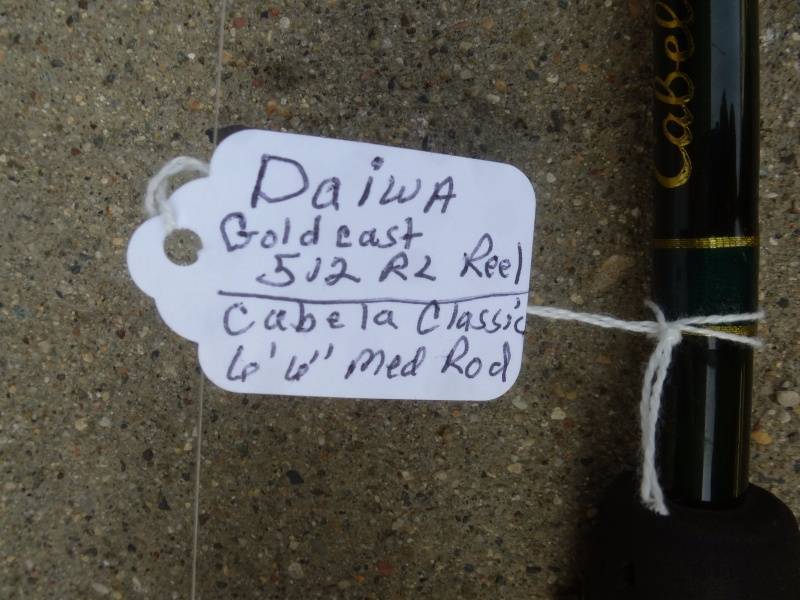 DaiwA
Goldcast
512 RL Reel
Cabela Classic
6'6" Med Rod
Cabel